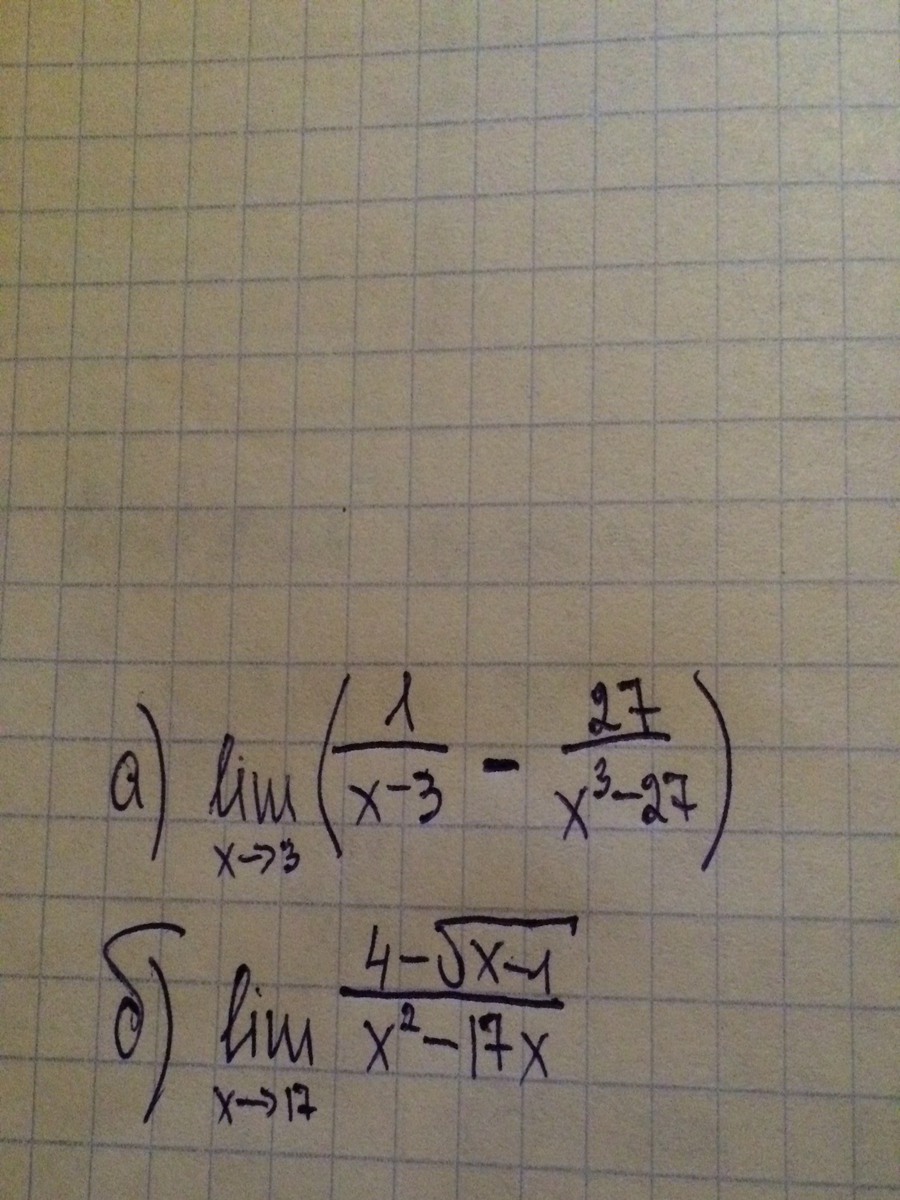 а) lim x→3 (1/(x-3) - 27/(x³-27))
б) lim x→17 (4-√(x-1))/(x²-17x)